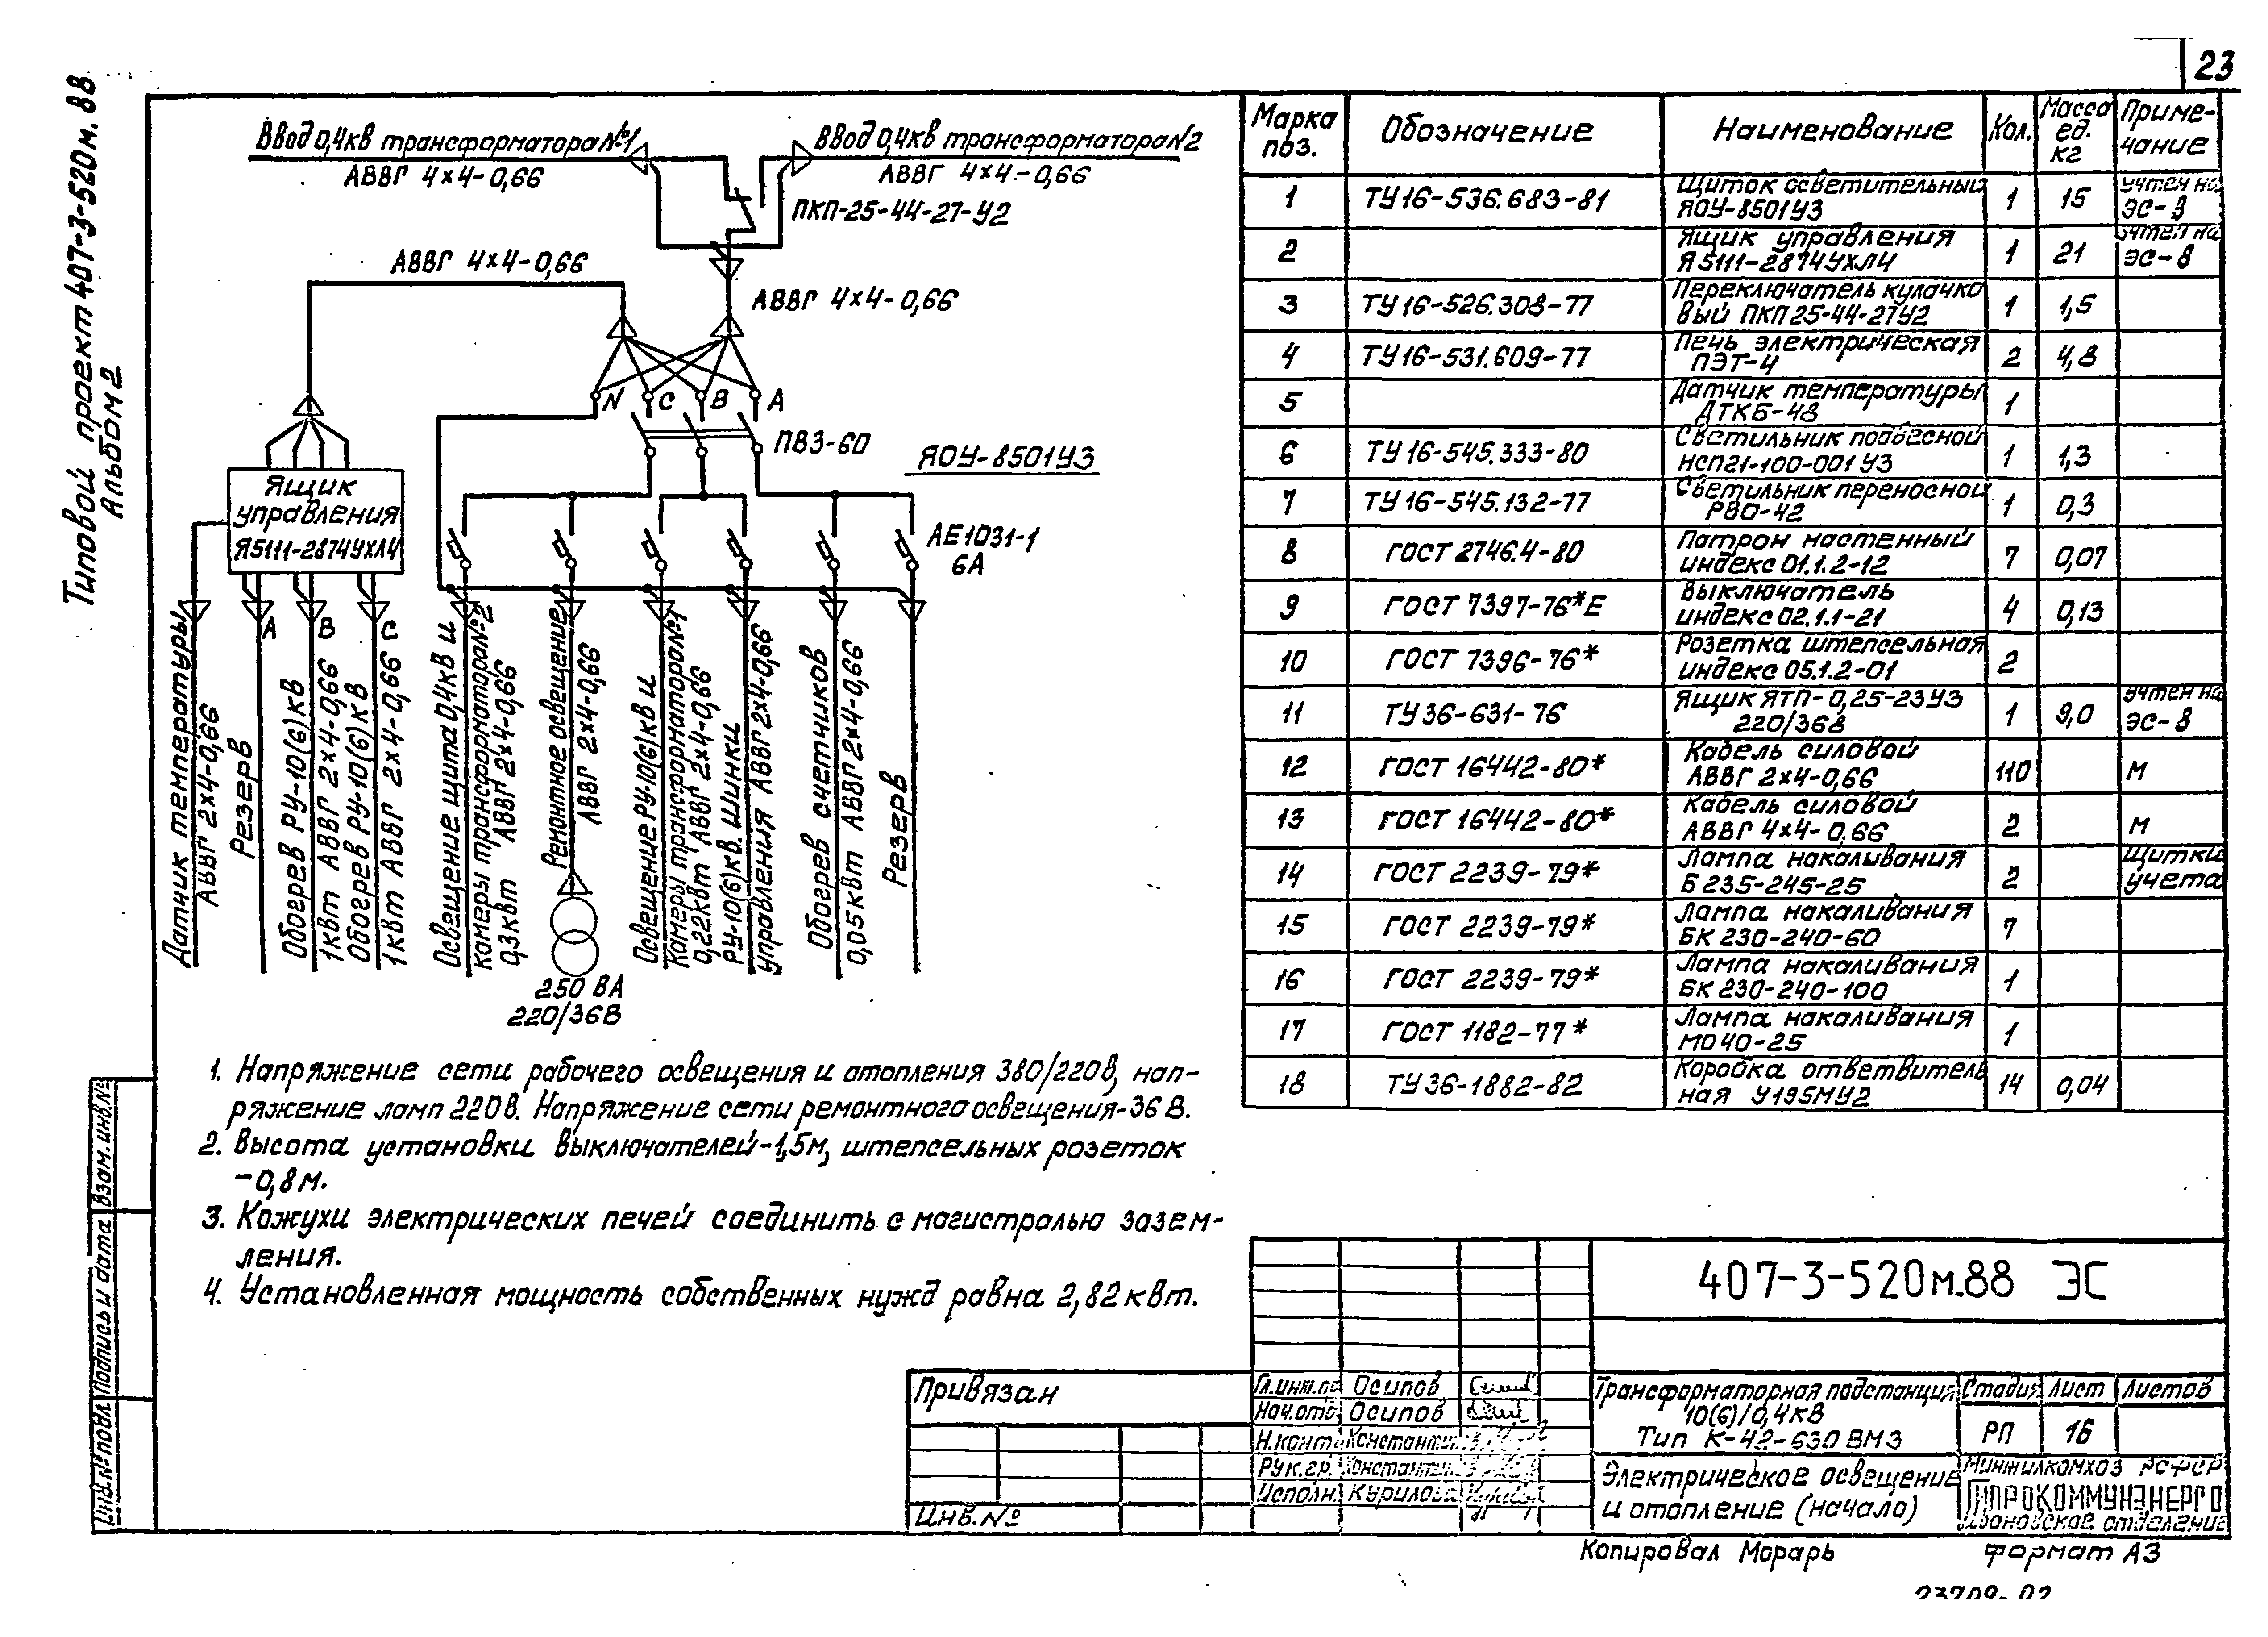 23
Типовой проект 407-3-520м.88
Альбом 2
Ввод 0,4кв трансформатора №1
АВВГ 4×4-0,66
Ввод 0,4кв трансформатора №2
АВВГ 4×4-0,66
ПКП-25-44-27-У2
АВВГ 4×4-0,66
АВВГ 4×4-0,66
N С В А
ПВ3-60
ЯОУ-8501У3
Ящик
управления
Я5111-2874УХЛ4
АЕ1031-1
6А
А В С
Датчик температуры
АВВГ 2×4-0,66
Резерв
Обогрев РУ-10(6)кВ
1квт АВВГ 2×4-0,66
Обогрев РУ-10(6)кВ
1квт АВВГ 2×4-0,66
Освещение щита 0,4кв и
камеры трансформатора№2
0,3квт АВВГ 2×4-0,66
Ремонтное освещение
АВВГ 2×4-0,66
250 ВА
220/36В
Освещение РУ-10(6)кв и
камеры трансформатора№1
0,22квт АВВГ 2×4-0,66
РУ-10(6)кв. Шинки
управления АВВГ 2×4-0,66
Обогрев счетчиков
0,05квт АВВГ 2×4-0,66
Резерв
1. Напряжение сети рабочего освещения и отопления 380/220В, нап-
ряжение ламп 220В. Напряжение сети ремонтного освещения-36В.
2. Высота установки выключателей-1,5м, штепсельных розеток
-0,8м.
3. Кожухи электрических печей соединить с магистралью зазем-
ления.
4. Установленная мощность собственных нужд равна 2,82квт.
Марка поз. Обозначение Наименование Кол. Масса ед. кг Приме-чание
1 ТУ16-536.683-81 Щиток осветительный ЯОУ-8501У3 1 15 учтен на ЭС-8
2 Ящик управления Я5111-2874УХЛ4 1 21 учтен на ЭС-8
3 ТУ16-526.308-77 Переключатель кулачко вый ПКП25-44-27У2 1 1,5
4 ТУ16-531.609-77 Печь электрическая ПЭТ-4 2 4,8
5 Датчик температуры ДТКБ-48 1
6 ТУ16-545.333-80 Светильник подвесной НСП21-100-001У3 1 1,3
7 ТУ16-545.132-77 Светильник переносной РВО-42 1 0,3
8 ГОСТ 2746.4-80 Патрон настенный индекс 01.1.2-12 7 0,07
9 ГОСТ 7397-76*Е Выключатель индекс 02.1.1-21 4 0,13
10 ГОСТ 7396-76* Розетка штепсельная индекс 05.1.2-01 2
11 ТУ36-631-76 Ящик ЯТП-0,25-23У3 220/36В 1 9,0 учтен на ЭС-8
12 ГОСТ 16442-80* Кабель силовой АВВГ 2×4-0,66 110 м
13 ГОСТ 16442-80* Кабель силовой АВВГ 4×4-0,66 2 м
14 ГОСТ 2239-79* Лампа накаливания Б 235-245-25 2 Щитки учета
15 ГОСТ 2239-79* Лампа накаливания БК 230-240-60 7
16 ГОСТ 2239-79* Лампа накаливания БК 230-240-100 1
17 ГОСТ 1182-77* Лампа накаливания МО 40-25 1
18 ТУ36-1882-82 Коробка ответвитель ная У195МУ2 14 0,04
407-3-520м.88 ЭС
Привязан
Инв.№
Гл.инж.пр Осипов
Нач.отд Осипов
Н.конт. Константин
Рук.гр. Константин
Исполн. Курилова
Трансформаторная подстанция
10(6)/0,4кВ
Тип К-42-630ВМ3
Стадия Лист Листов
РП 16
Электрическое освещение
и отопление (начало)
Минжилкомхоз РСФСР
ГИПРОКОММУНЭНЕРГО
Ивановское отделение
Инв.№подл. Подпись и дата Взам.инв.№
Копировал Морарь
Формат А3